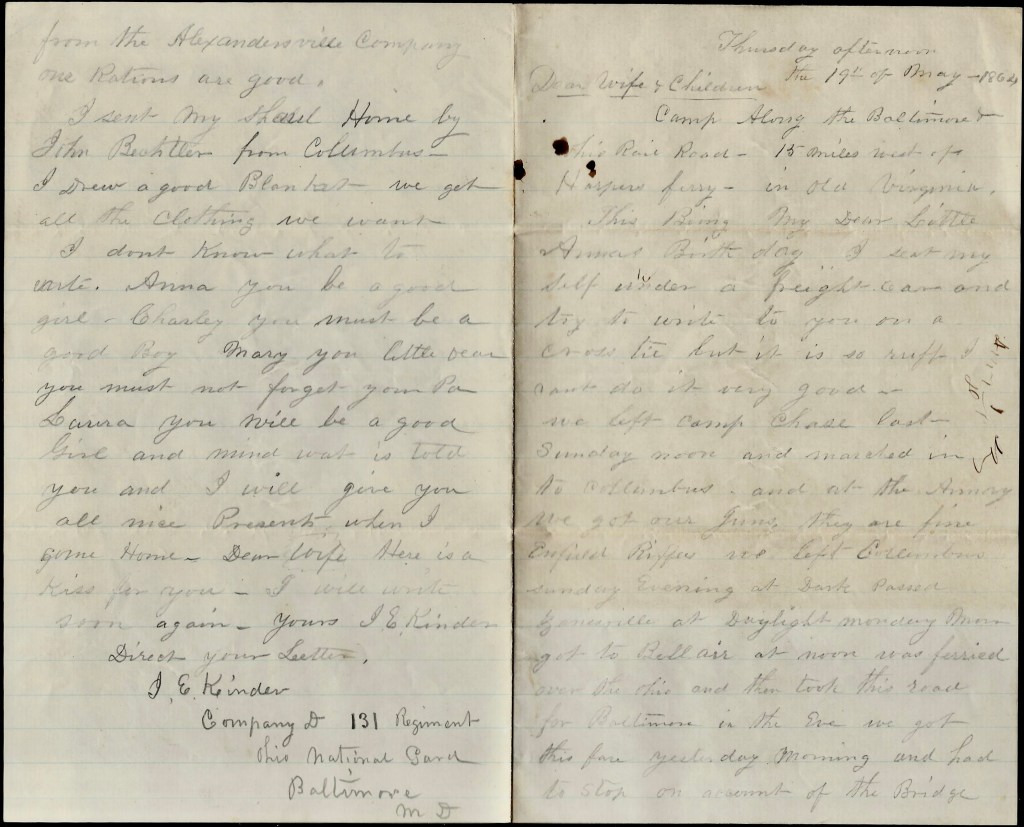 from the Alexandersville Company
one Rations are good.
I sent my Shawl Home by
John Bechtler from Collumbus –
I Drew a good Blanket we get
all the Clothing we want
I dont Know what to
write. Anna you be a good
girl – Charley you must be a
good Boy Mary you little dear
you must not forget your Pa
Laura you will be a good
Girl and mind wat is told
you and I will give you
all nise Presents when I
come Home – Dear Wife Here is a
Kiss for you – I will write
soon again – yours I E Kinder
Direct your Letter.
I. E. Kinder
Company D 131 Regiment
Ohio National Gard
Baltimore
M D
Thursday afternoon
the 19th of May – 1864
Dear Wife & Children
Camp Along the Baltimore &
Ohio Raie Road – 15 miles west of
Harpers ferry – in old Virginia.
This Being My Dear Little
Annas Birth day I seat my
self under a freight car and
try to write to you on a
cross tie but it is so ruff I
cant do it very good –
we left Camp Chase last
Sunday noon and marched in
to collumbus. and at the Armory
we got our Guns, they are fine
Enfield Riffles we left Collumbus
sunday Evening at Dark Passed
Zanesville at Daylight monday Morn
got to Bellair at noon was ferried
over the Ohio and then took this road
for Baltimore in the Eve we got
this fare yesterday Morning and had
to Stop on account of the Bridge